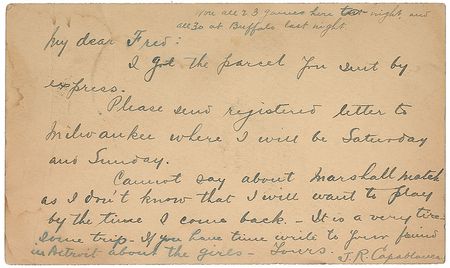 won all 23 games here last night, and
all 30 at Buffalo last night
My dear Fred:
I got the parcel you sent by
express.
Please send registered letter to
Milwaukee where I will be Saturday
and Sunday.
Cannot say about Marshall match
as I don't know that I will want to play
by the time I come back. - It is a very tire-
some trip - If you have time write to your friend
in Detroit about the girls - Yours.
J. R. Capablanca